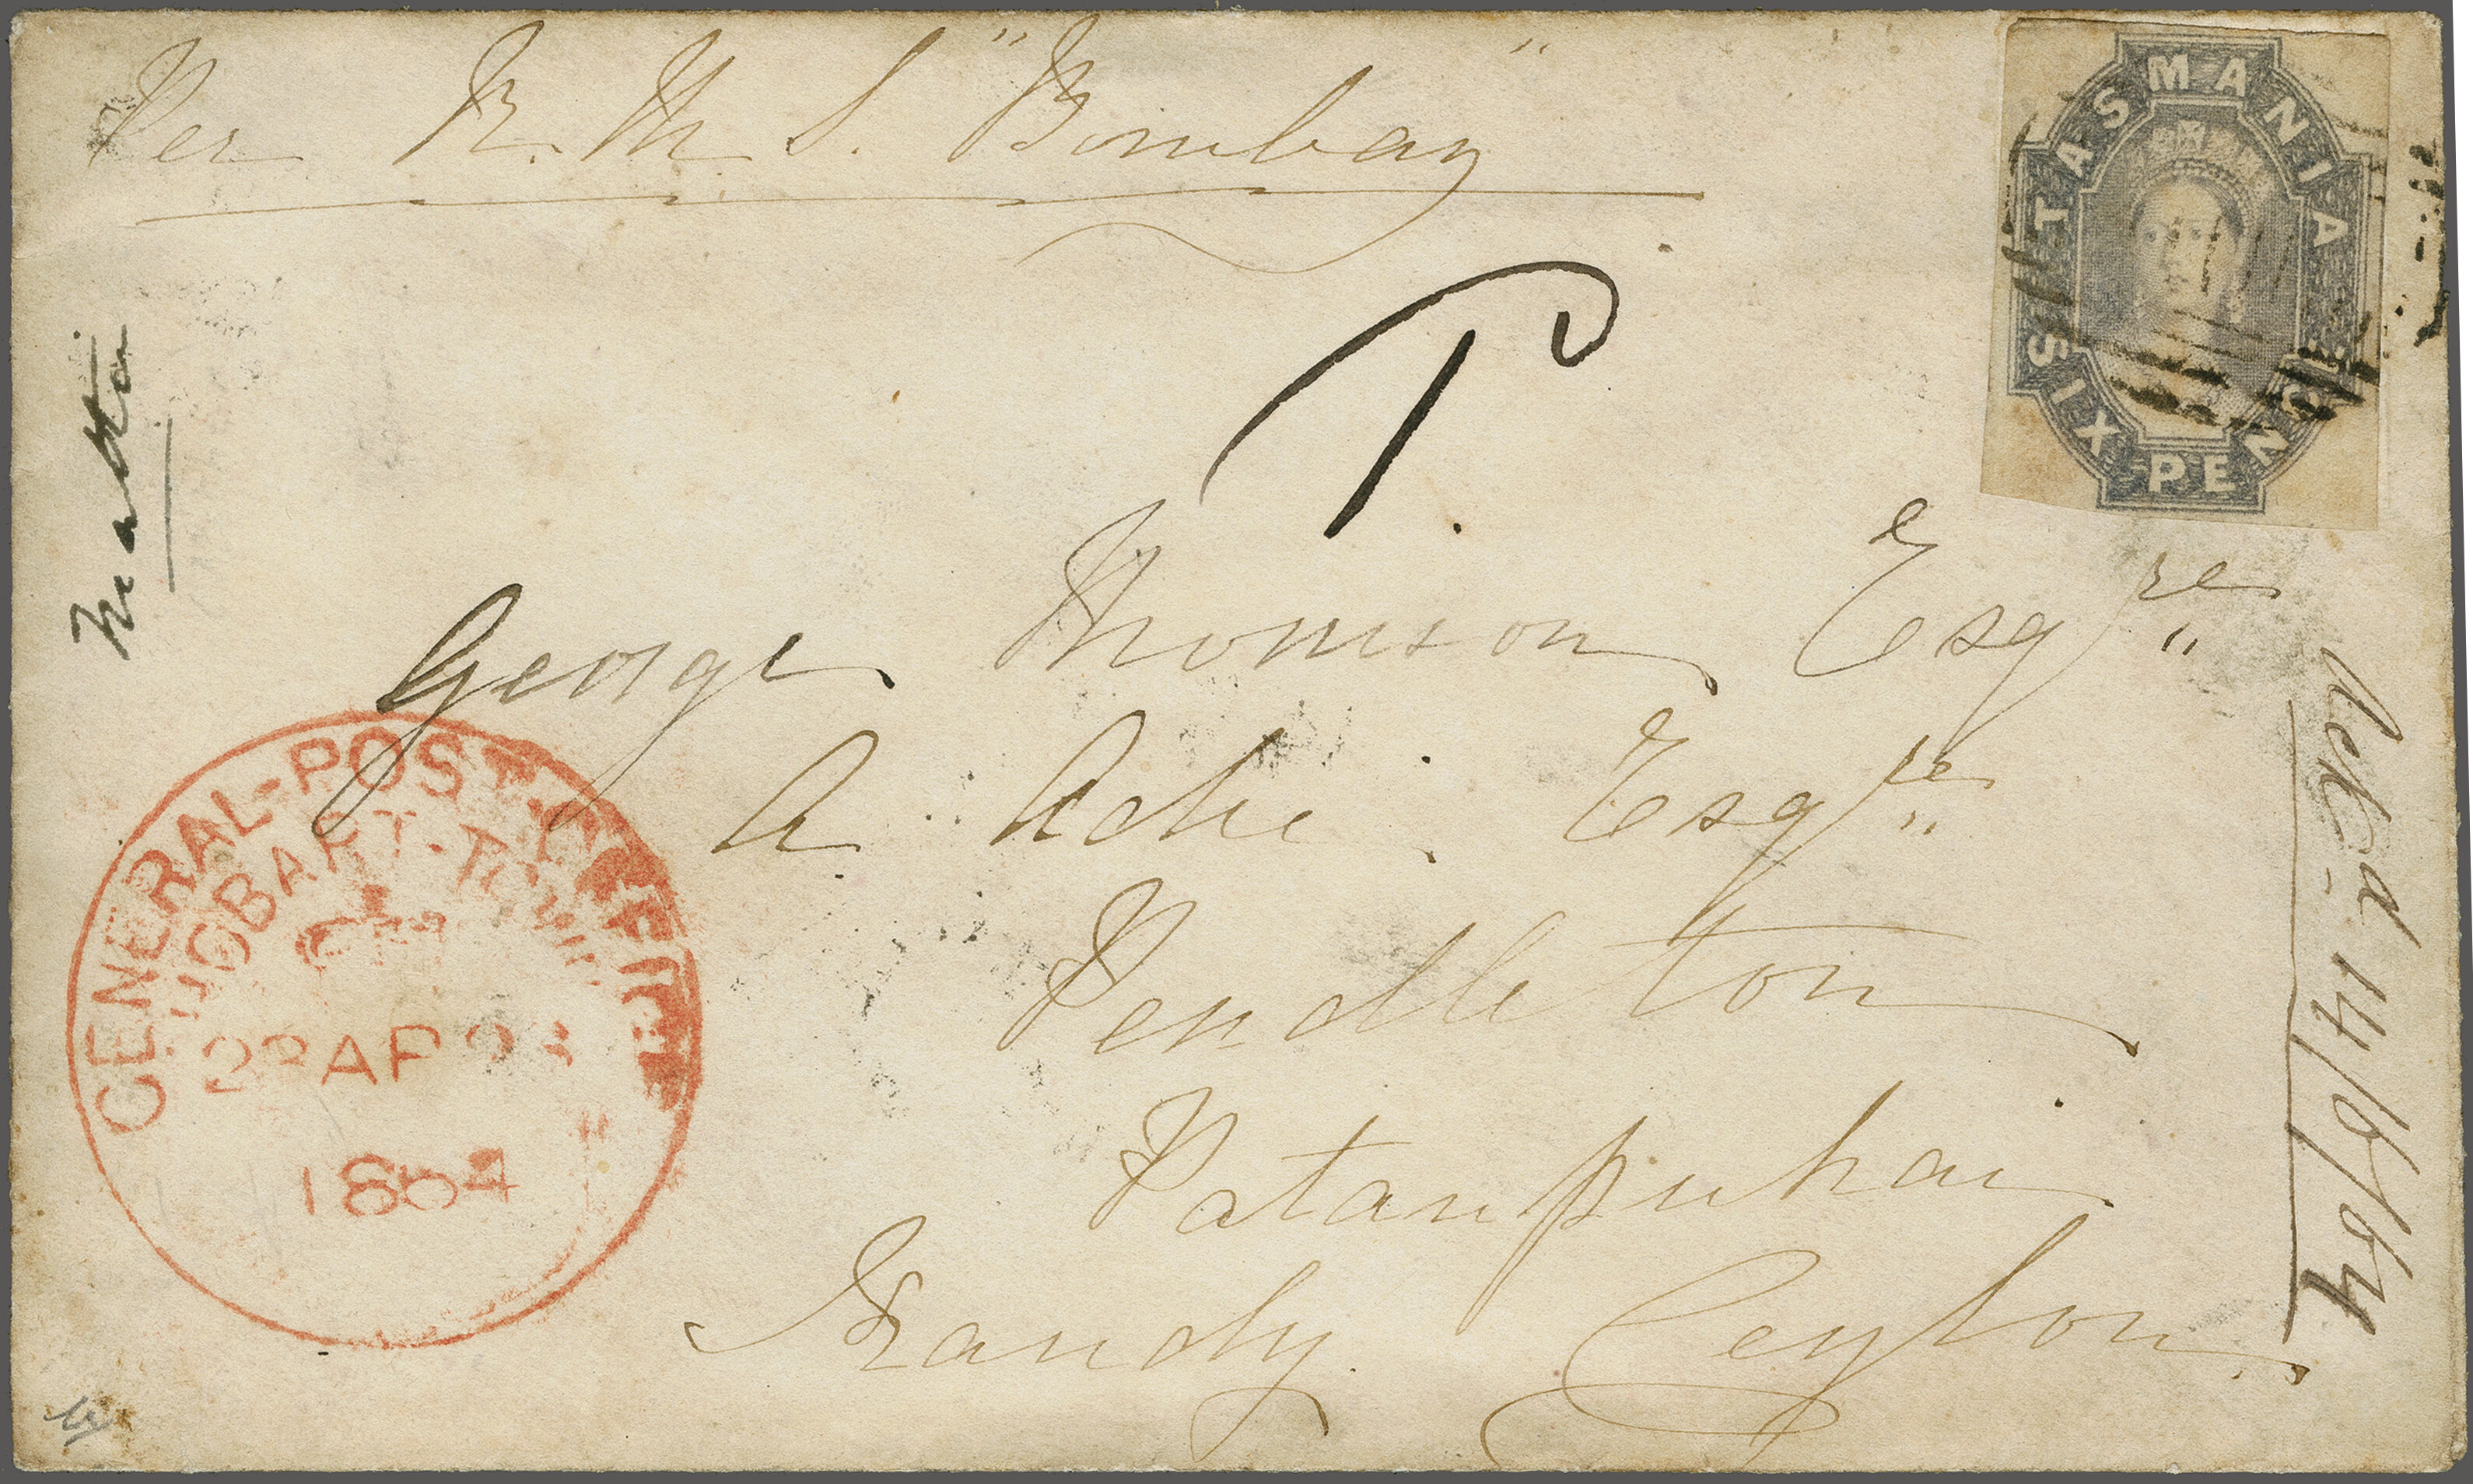 Per R. M. S. "Bombay"
TASMANIA
SIX PENCE
Malta
P.
George Thomson Esqre
A Adie Esqre
Pendleton
Patanpuhai
Kandy Ceylon
GENERAL-POST-OFFICE
HOBART-TOWN
AP
1864
Recd 14/6/64